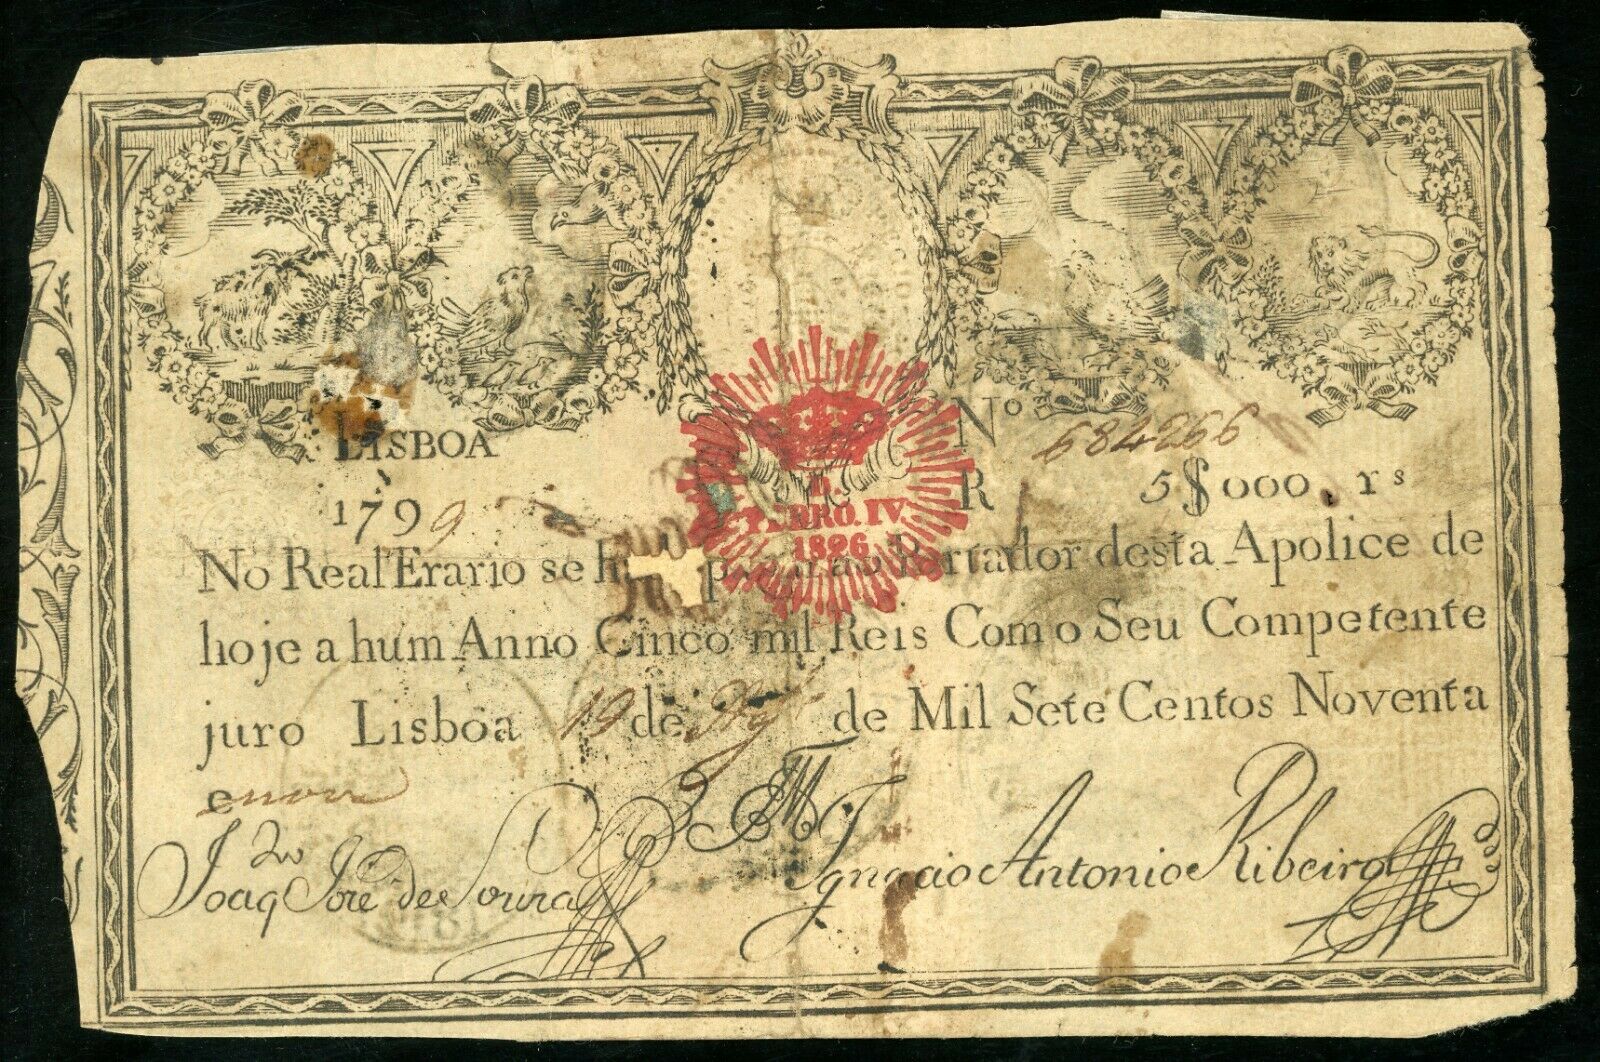 LISBOA
Nº 684266
1799
R 5$000. rs
P.
PEDRO. IV
1826
No Real Erario se pagar ao Portador desta Apolice de
hoje a hum Anno Cinco mil Reis Com o Seu Competente
juro Lisboa 19 de de Mil Sete Centos Noventa
e nove
Joaq José de Souza
Ignacio Antonio Ribeiro